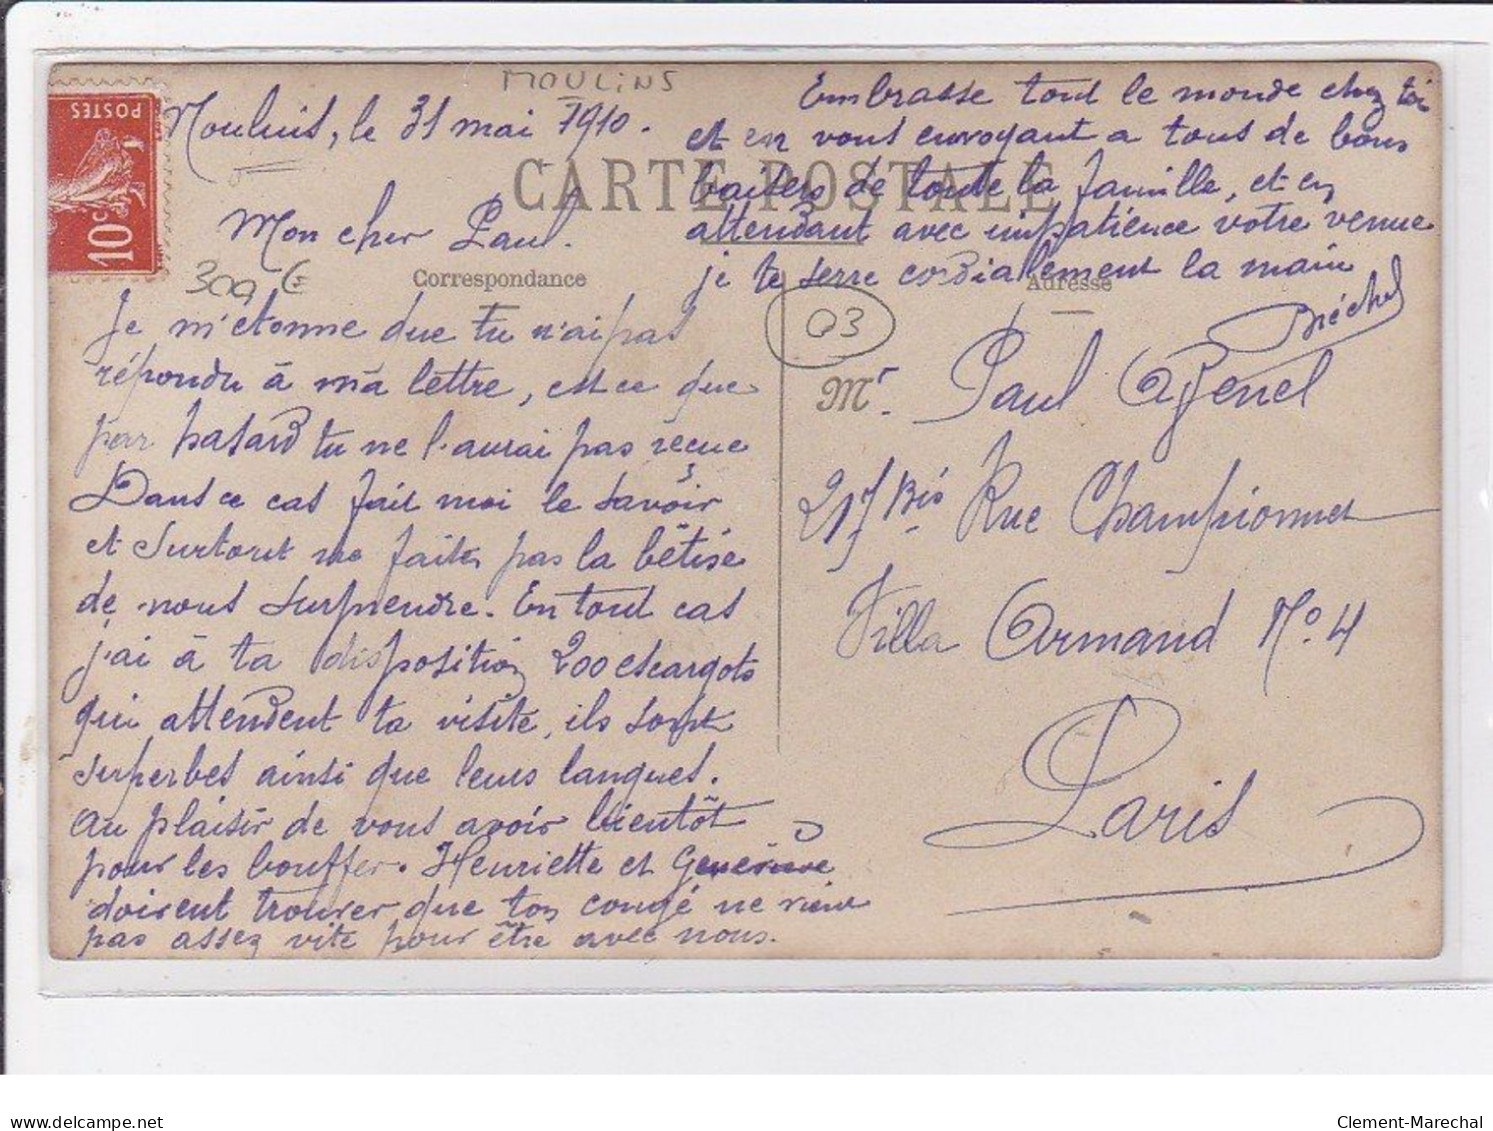 MOULINS
POSTES
10c
Moulins, le 31 mai 1910.
CARTE POSTALE
Mon cher Paul.
300 €
Correspondance
Je m'étonne que tu n'ai pas
répondu à ma lettre, est ce que
par hasard tu ne l'aurai pas reçue
Dans ce cas fait moi le savoir
et surtout ne faites pas la bêtise
de nous surprendre. En tout cas
j'ai à ta disposition 200 escargots
qui attendent ta visite, ils sont
superbes ainsi que leurs langues.
Au plaisir de vous avoir bientôt
pour les bouffer. Henriette et Geneviève
doivent trouver que ton congé ne vient
pas assez vite pour être avec nous.
Embrasse tout le monde chez toi
et en vous envoyant a tous de bons
baisers de toute la famille, et en
attendant avec impatience votre venue
je te serre cordialement la main
Bréchel
Adresse
03
Mr. Paul Agenel
217 Bis Rue Championnet
Villa Armand No. 4
Paris
delcampe.net
Clement-Marechal